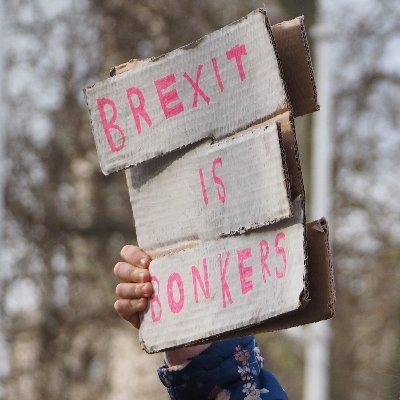 BREXIT
IS
BONKERS